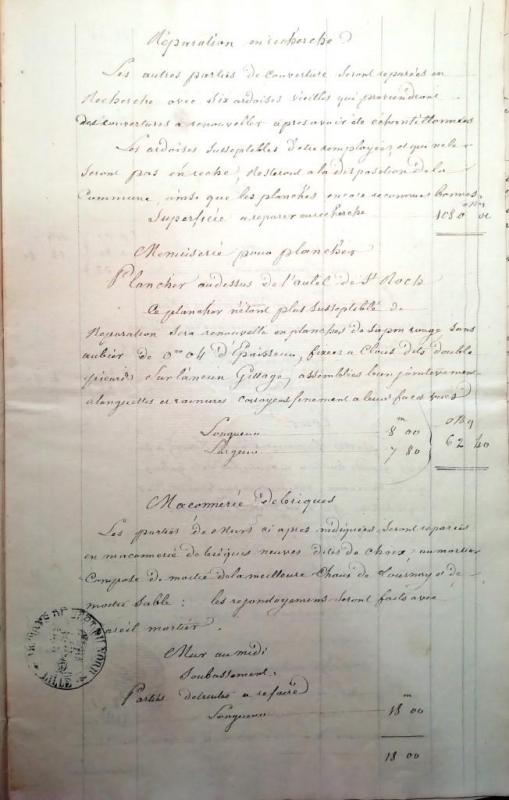 Réparation en recherche
Les autres parties de couverture seront reparées en
Recherche avec dix ardoises vieilles qui proviendront
des couvertures a renouveller apres avoir été échantillonnées
Les ardoises susseptibles d'etre remployées, et qui ne le
seront pas en reche, Resteront a la disposition de la
Commune, ainsi que les planches encore reconnues bonnes.
Superficie a reparer en recherche 1080
Menuiserie pour plancher
Plancher audessus de l'autel de St Roch
Ce plancher n'étant plus susseptible de
Reparation sera renouvellé en planches de sapin rouge sans
aubier de 0m 04 d'Epaisseur, fixées a Clous dits double
sur l'ancien Gittage, assemblées bien jointivement
a languettes et rainures finement a leurs faces vues
Longueur 8m 00
Largeur 7 80
62 40
Maconnerie de briques
Les parties de Murs ci apres indiquées, seront reparées
en maconnerie de briques neuves dites de choix, au mortier
Composé de moitié de la meilleure Chaux de Tournay et de
moitié sable : les rejondoyements seront faits avec
pareil mortier.
Mur au midi
Soubassement.
Parties detruites a refaire
Longueur 18m 00
18 00
ARCHIVES DU DEPT DU NORD
LILLE